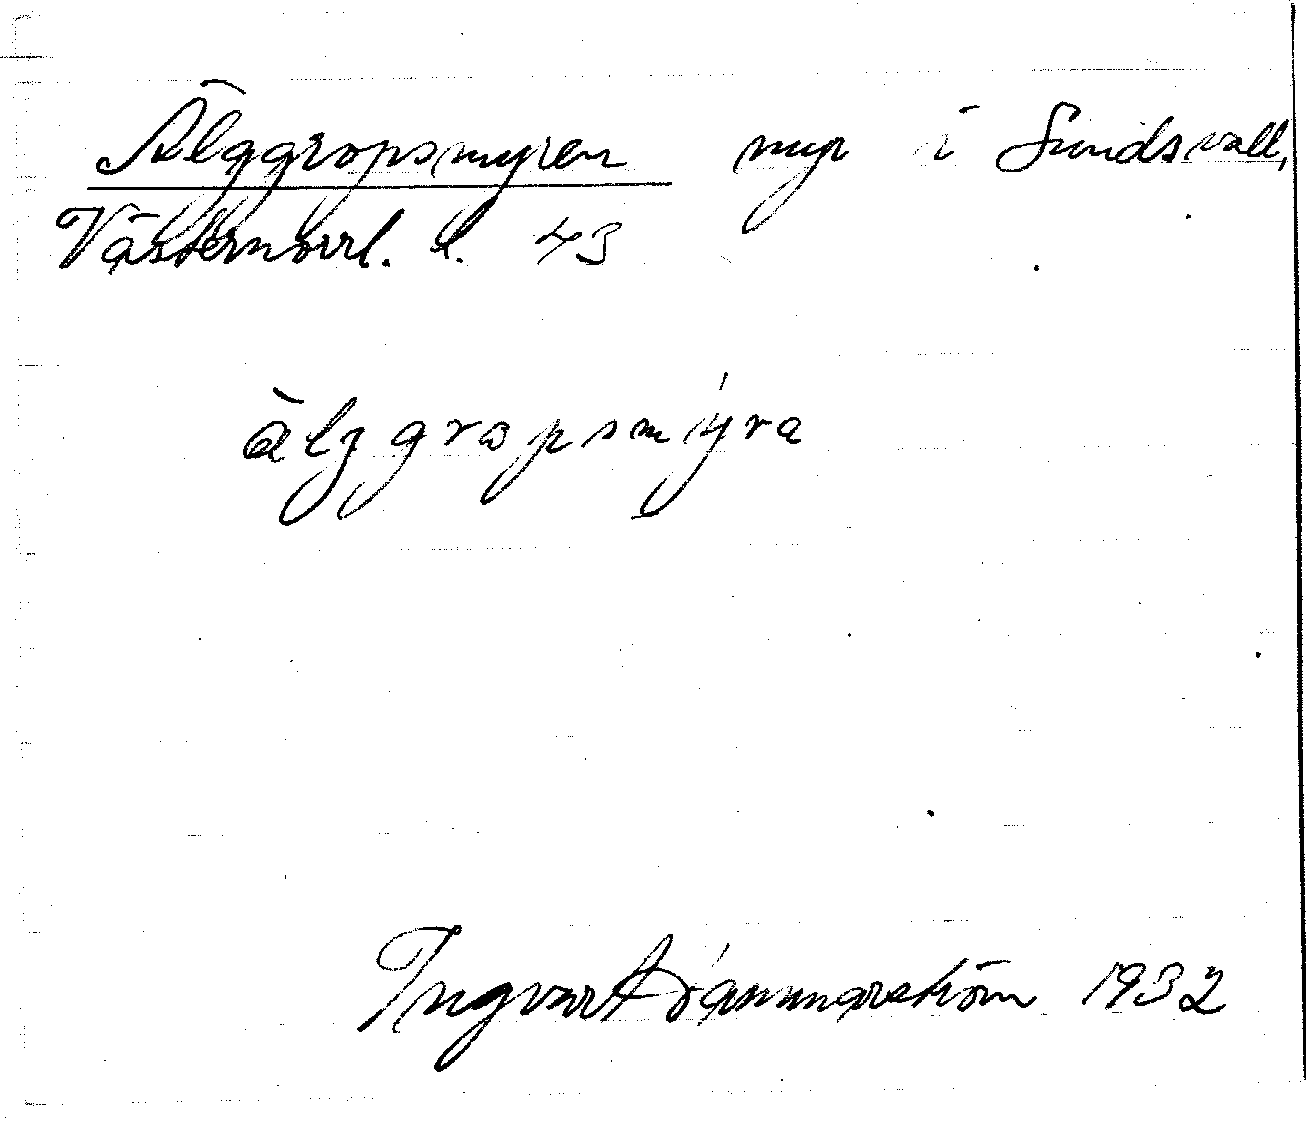 Älggropsmyren myr i Sundsvall,
Västernorrl. l. 43
älggropsmýra
Ingvar Hammarström 1932